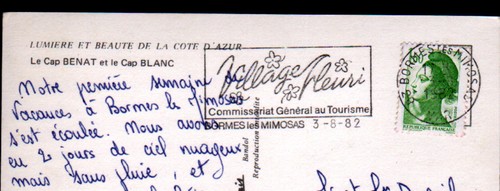 LUMIERE ET BEAUTE DE LA COTE D'AZUR
Le Cap BENAT et le Cap BLANC
Village Fleuri
Commissariat Général au Tourisme
BORMES les MIMOSAS 3-8-82
BORMES LES MIMOSAS
Notre première semaine de
Vacances à Bormes le Mimosas
s'est écoulée. Nous avons
eu 2 jours de ciel nuageux
mais sans pluie, et
Bandol
Reproduction interdite